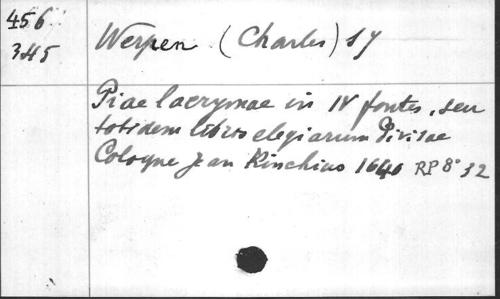 456
3H5
Werpen (Charles) SJ
Piae lacrymae in IV fontes, seu
totidem libros elegiarum Divisae
Cologne Jean Kinchius 1640 RP 8° 32